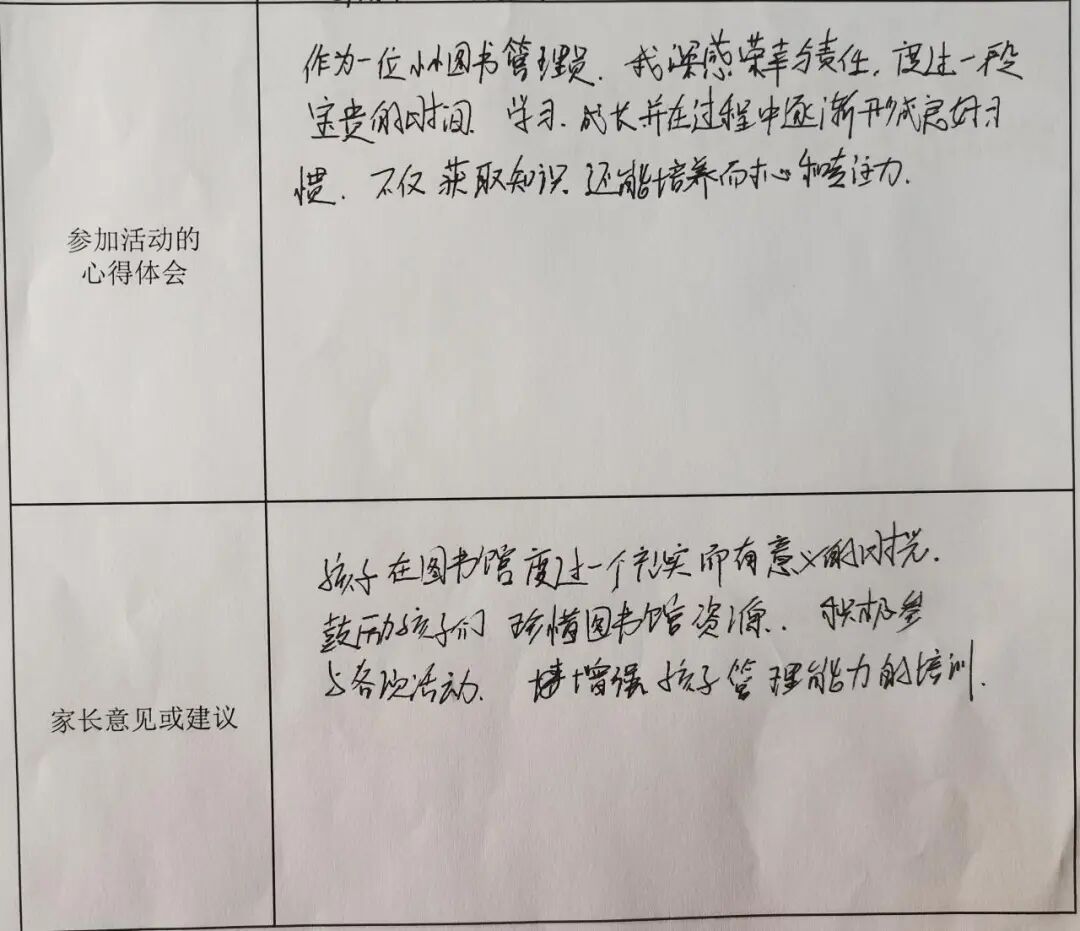 参加活动的
心得体会
作为一位小小图书管理员.我深感荣幸与责任,度过一段
宝贵的时间.学习.成长并在过程中逐渐形成良好习
惯.不仅获取知识.还能培养耐心和专注力.
家长意见或建议
孩子在图书馆度过一个充实而有意义的时光.
鼓励孩子们珍惜图书馆资源.积极参
与各项活动.增强孩子管理能力的培训.